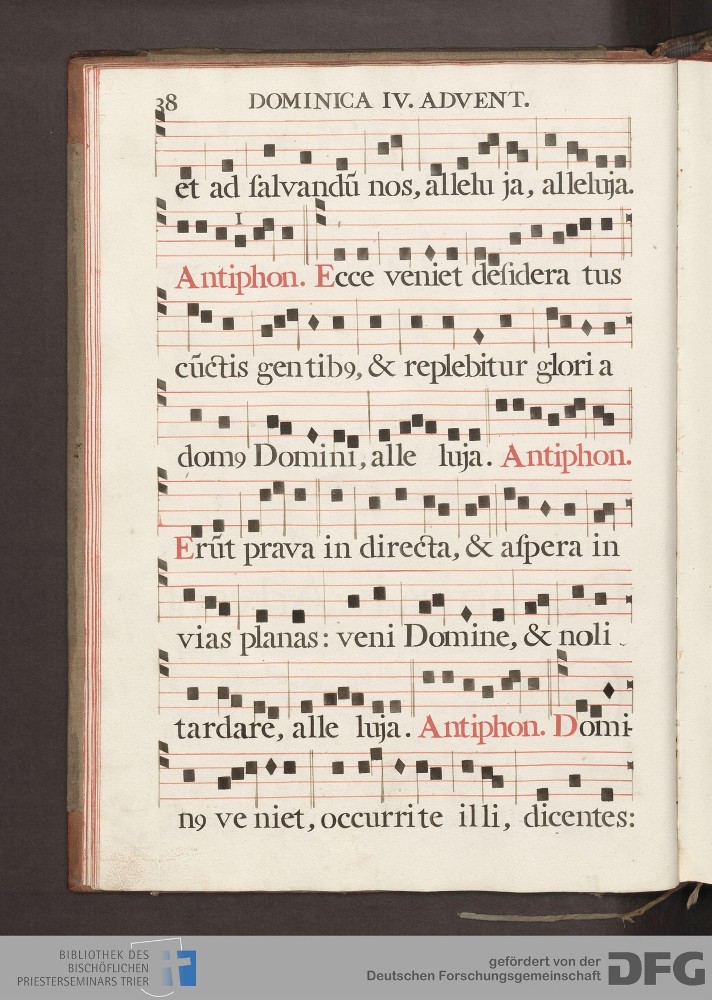 38 DOMINICA IV. ADVENT.
et ad ſalvandū nos, allelu ja, alleluja.
1
Antiphon. Ecce veniet deſidera tus
cūctis gentibꝯ, & replebitur glori a
domꝯ Domini, alle luja. Antiphon.
Erūt prava in directa, & aſpera in
vias planas: veni Domine, & noli
tardare, alle luja. Antiphon. Domi-
nꝯ ve niet, occurrite illi, dicentes:
BIBLIOTHEK DES
BISCHÖFLICHEN
PRIESTERSEMINARS TRIER
gefördert von der
Deutschen Forschungsgemeinschaft
DFG